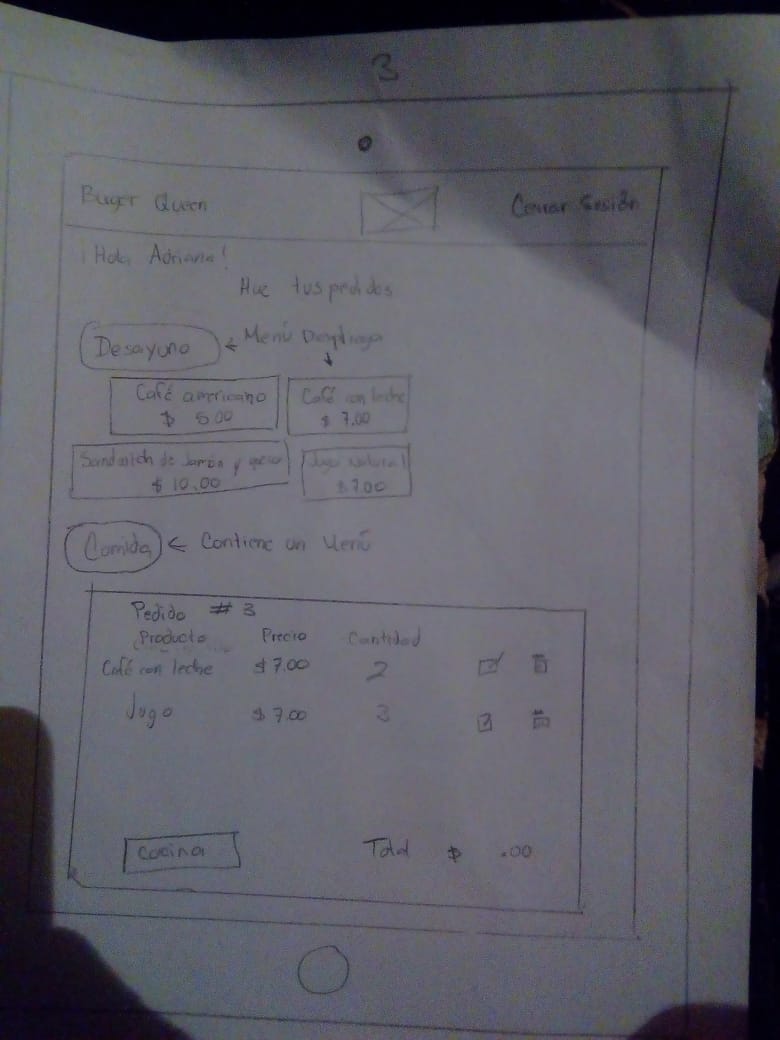 3
Buger Queen Cerrar Sesión
¡Hola Adriana!
tus pedidos
Desayuno ← Menú
Café americano Café con leche
$ 5.00 $ 7.00
Sandwich de Jamón y queso Jugo Natural
$ 10.00 $7.00
Comida ← Contiene un Menú
Pedido # 3
Producto Precio Cantidad
Café con leche $7.00 2
Jugo $7.00 3
Cocina Total $ .00